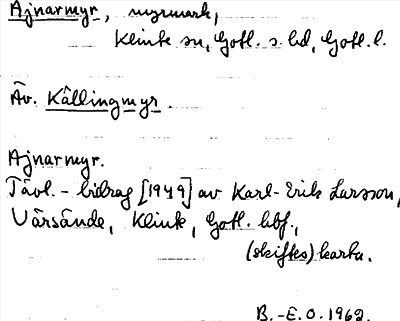 Ajnarmyr, myrmark,
Klinte sn, Gotl. s. hd, Gotl. l.
Äv. Källingmyr.
Ajnarmyr.
Tävl.-bidrag [1949] av Karl-Erik Larsson,
Värsände, Klinte, Gotl. hbf.,
(skiftes)karta.
B.-E.O. 1962.